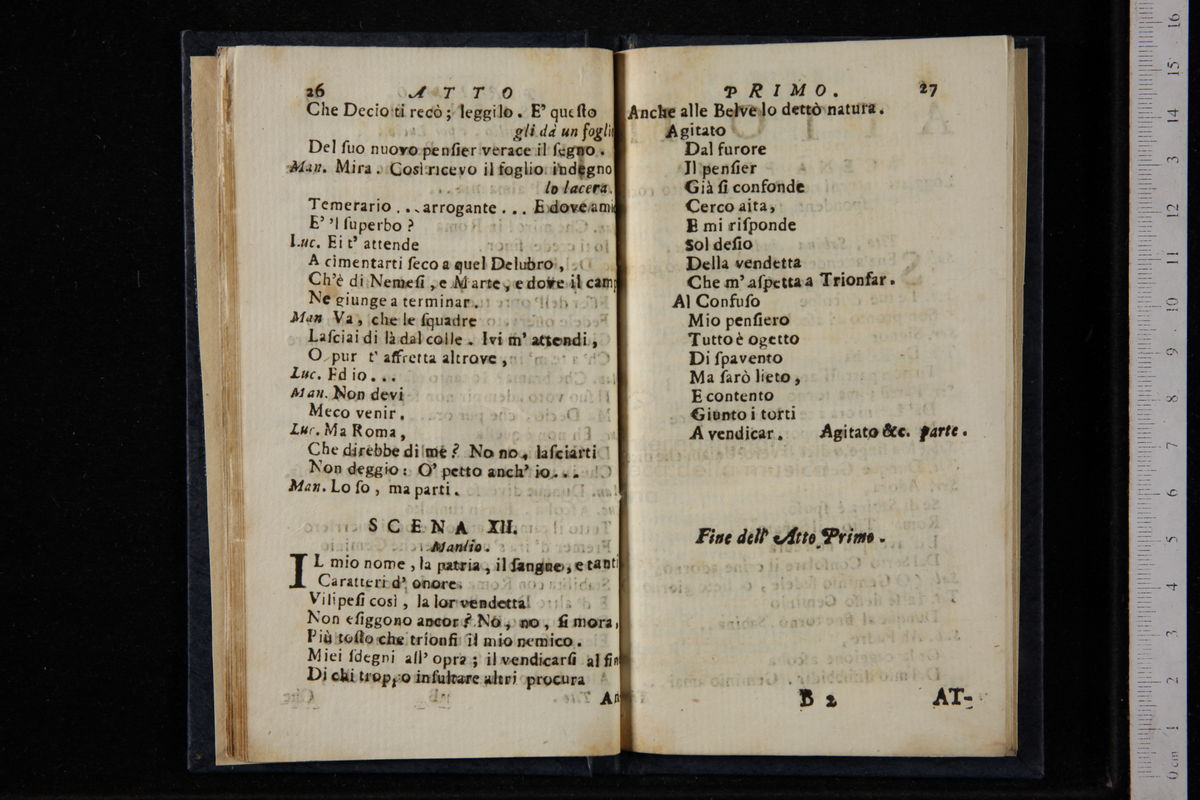 26 ATTO
Che Decio ti recò; leggilo. E' queſto
gli dà un foglio
Del ſuo nuovo penſier verace il ſegno.
Man. Mira. Così ricevo il foglio indegno
lo lacera.
Temerario... arrogante... E dove
E' 'l ſuperbo?
Luc. Ei t' attende
A cimentarti ſeco a quel Delubro,
Ch'è di Nemeſi, e Marte, e dove il
Ne giunge a terminar.
Man Va, che le ſquadre
Laſciai di là dal colle. Ivi m' attendi,
O pur t' affretta altrove,
Luc. Ed io...
Man. Non devi
Meco venir.
Luc. Ma Roma,
Che direbbe di me? No no, laſciarti
Non deggio: O' petto anch' io...
Man. Lo ſo, ma parti.
SCENA XII.
Manlio.
IL mio nome, la patria, il ſangue, e tanti
Caratteri d' onore
Vilipeſi così, la lor vendetta
Non eſiggono ancor? No, no, ſi mora,
Più toſto che trionfi il mio nemico.
Miei ſdegni all' opra; il vendicarſi al
Di chi troppo inſultare altri procura
An
PRIMO. 27
Anche alle Belve lo dettò natura.
Agitato
Dal furore
Il penſier
Già ſi confonde
Cerco aita,
E mi riſponde
Sol deſio
Della vendetta
Che m' aſpetta a Trionfar.
Al Confuſo
Mio penſiero
Tutto è ogetto
Di ſpavento
Ma ſarò lieto,
E contento
Giunto i torti
A vendicar. Agitato &c. parte.
Fine dell' Atto Primo.
B 2 AT-
0 cm 1 2 3 4 5 6 7 8 9 10 11 12 13 14 15 16